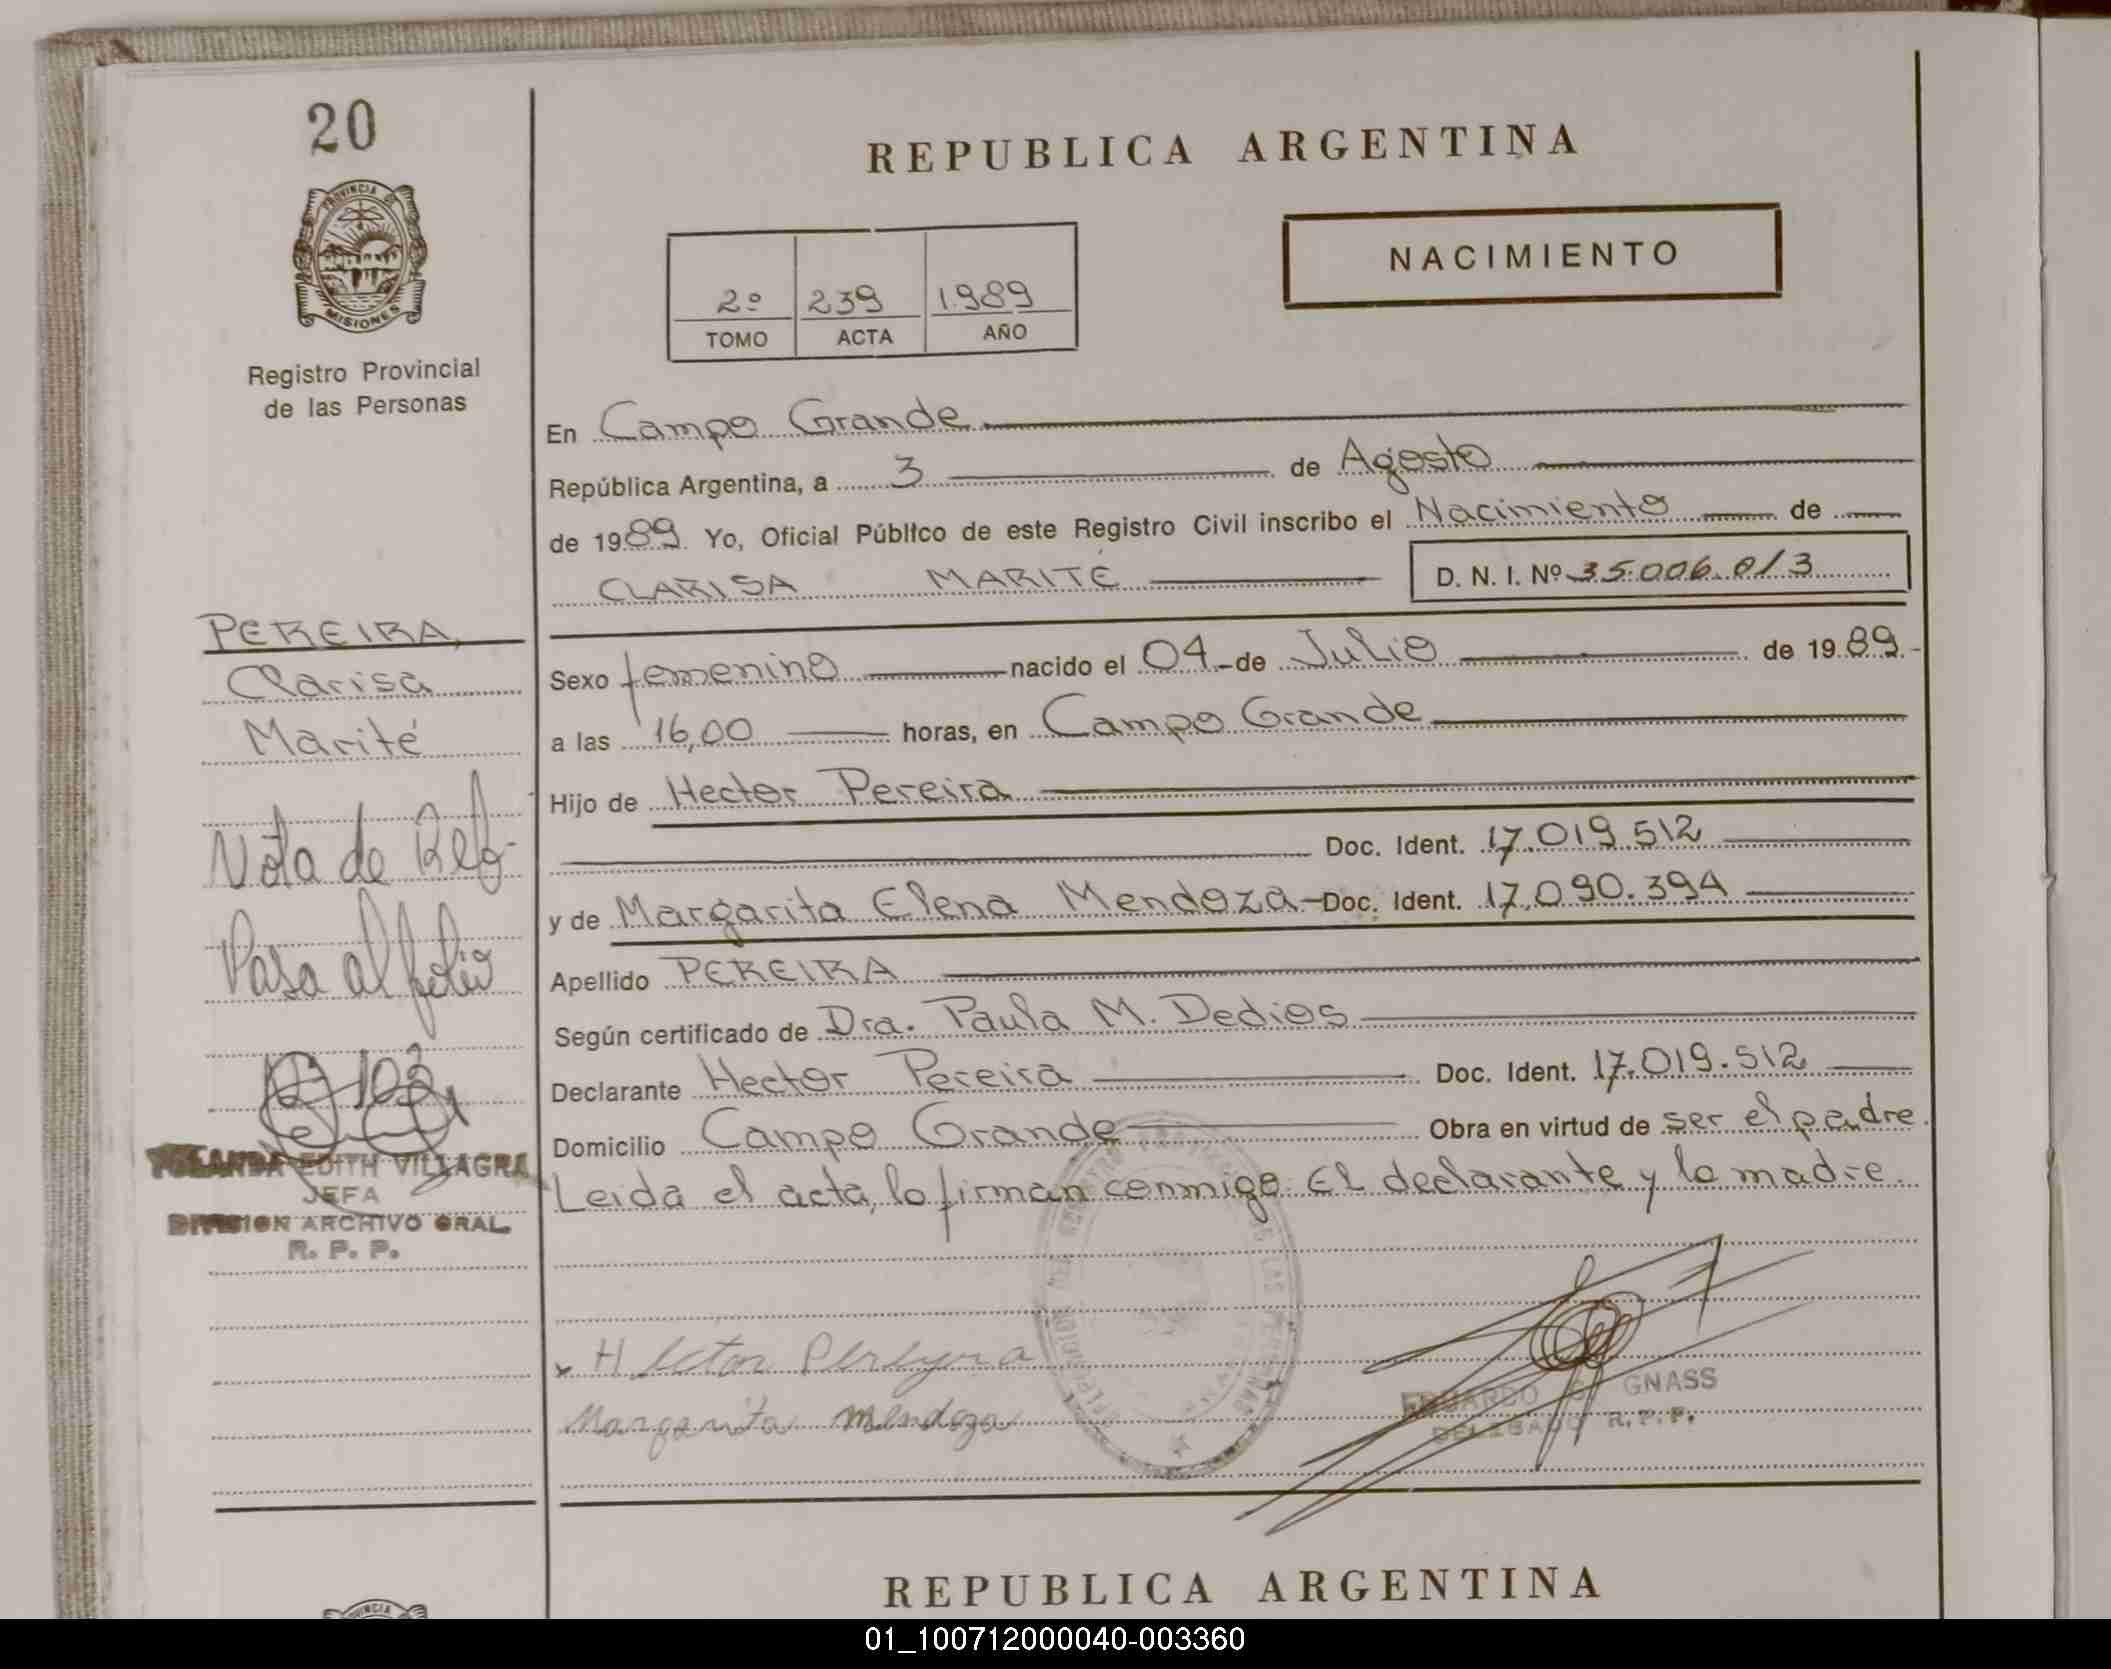 20
PROVINCIA DE
MISIONES
Registro Provincial
de las Personas
REPUBLICA ARGENTINA
NACIMIENTO
2º 239 1.989
TOMO ACTA AÑO
En Campo Grande
República Argentina, a 3 de Agosto
de 1989. Yo, Oficial Público de este Registro Civil inscribo el Nacimiento de
CLARISA MARITÉ D. N. I. Nº 35.006.013
PEREIRA,
Clarisa
Marité
Nota de Ref.
Pasa al folio
103
YOLANDA EDITH VILLAGRA
JEFA
DIVISION ARCHIVO GRAL.
R. P. P.
Sexo femenino nacido el 04 de Julio de 1989.
a las 16,00 horas, en Campo Grande
Hijo de Hector Pereira
Doc. Ident. 17.019.512
y de Margarita Elena Mendoza Doc. Ident. 17.090.394
Apellido PEREIRA
Según certificado de Dra. Paula M. Dedios
Declarante Hector Pereira Doc. Ident. 17.019.512
Domicilio Campo Grande Obra en virtud de ser el padre.
Leida el acta, lo firman conmigo El declarante y la madre.
x Hector Pereyra
Margarita Mendoza
EDUARDO GNASS
DELEGADO R.P.P.
REPUBLICA ARGENTINA
PROVINCIA
01_100712000040-003360